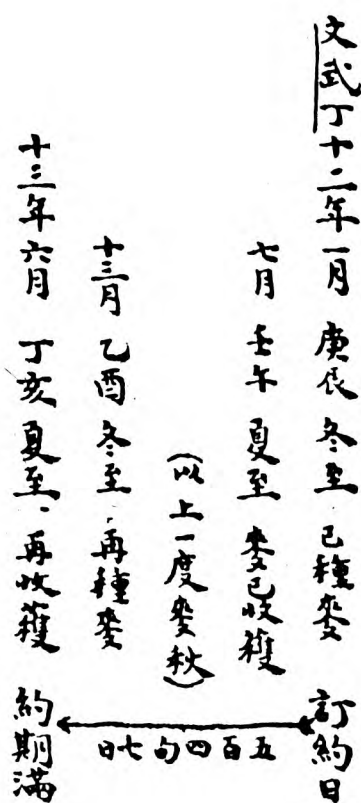 文武丁十二年一月 庚辰 冬至 已種麥 訂約日
七月 壬午 夏至 麥已收穫
(以上一度麥秋)
十三月 乙酉 冬至 再種麥
十三年六月 丁亥 夏至 再收穫 約期滿
五百四旬七日